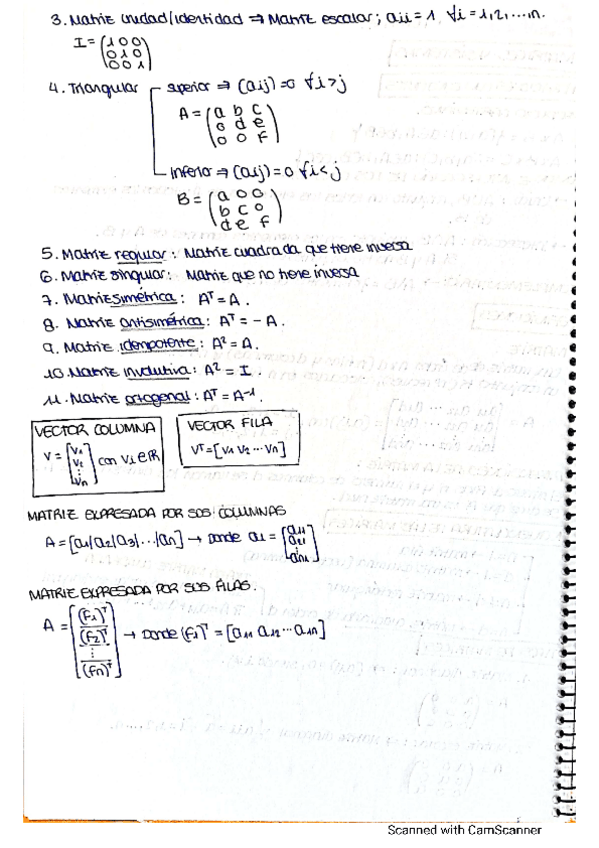 3. Matriz unidad/identidad ⇒ Matriz escalar; aii = 1 ∀i = 1,2,...,n.
I = (1 0 0
0 1 0
0 0 1)
4. Triangular
superior ⇒ (aij) = 0 ∀i>j
A = (a b c
0 d e
0 0 f)
inferior ⇒ (aij) = 0 ∀i<j
B = (a 0 0
b c 0
d e f)
5. Matriz regular: Matriz cuadrada que tiene inversa
6. Matriz singular: Matriz que no tiene inversa
7. Matriz simétrica: Aᵀ = A.
8. Matriz antisimétrica: Aᵀ = -A.
9. Matriz idempotente: A² = A.
10. Matriz involutiva: A² = I
11. Matriz ortogonal: Aᵀ = A⁻¹.
VECTOR COLUMNA
V = [v1
v2
⋮
vn] con vi ∈ ℝ
VECTOR FILA
Vᵀ = [v1 v2 ... vn]
MATRIZ EXPRESADA POR SUS COLUMNAS
A = [a1|a2|a3|...|an] → Donde a1 = [a11
a21
⋮
an1]
MATRIZ EXPRESADA POR SUS FILAS:
A = [(F1)ᵀ
(F2)ᵀ
⋮
(Fn)ᵀ] → Donde (F1)ᵀ = [a11 a12 ... a1n]
Scanned with CamScanner